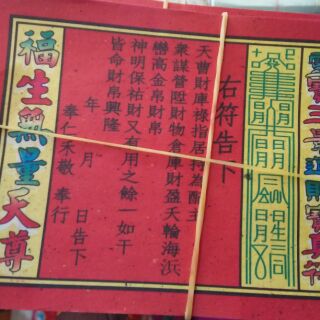 靈寶三景通財寶真符
右符告下
天曹財庫祿指居持為酧主
衆謀營陞財物倉庫財盈天輪海浜
巒高金帛財帛
神明保祐財又有用之餘一如干
皆命財帛興隆
年 月 日告下
奉仁禾敬 奉行
福生無量天尊